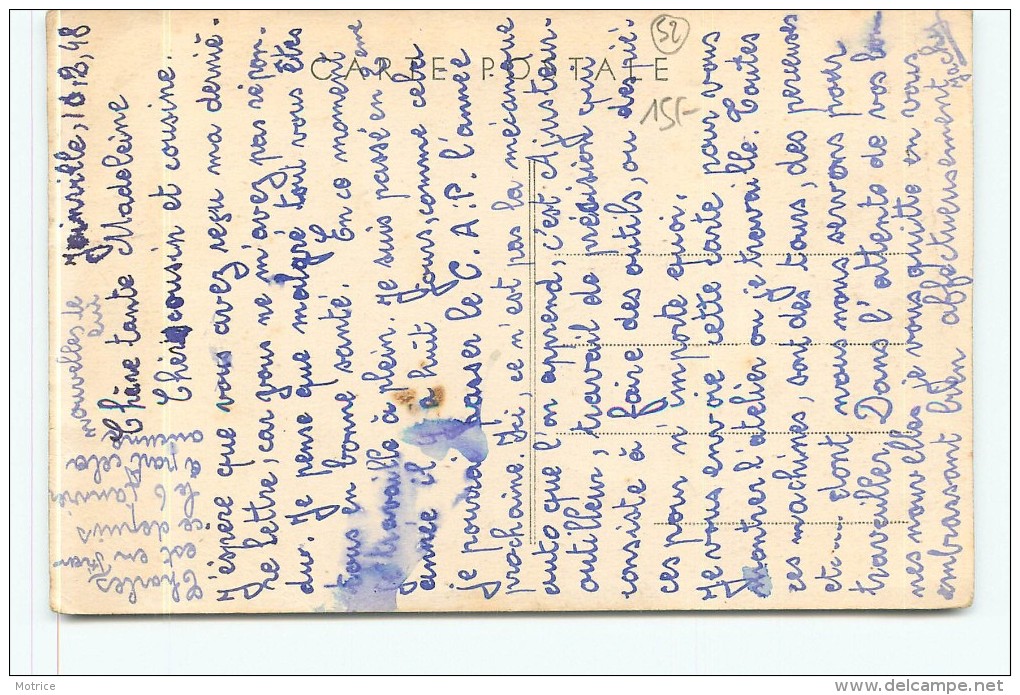 Joinville, 18.2.48
Chère tante Madeleine
Cher cousin et cousine.
J'espère que vous avez reçu ma derniè-
re lettre, car vous ne m'avez pas répon-
du. Je pense que malgré tout vous êtes
tous en bonne santé. En ce moment
je travaille à plein. Je suis passé en 2ème
année il y a huit jours, comme cela
je pourrai passer le C.A.P. l'année
prochaine. Ici, ce n'est pas la mécanique
auto que l'on apprend, c'est Ajusteur
outilleur, travail de précision qui
consiste à faire des outils, ou des piè-
ces pour n'importe quoi.
Je vous envoie cette carte pour vous
montrer l'atelier où je travaille. Toutes
ces machines, sont des tours, des perceuses
etc... dont nous nous servons pour
travailler. Dans l'attente de vos bon-
nes nouvelles je vous quitte en vous
embrassant bien affectueusement
Jacky
Charles est en
depuis le 6 Janvier
à part cela aucune
nouvelles de lui
CARTE POSTALE
52
15F-
Motrice
delcampe.net